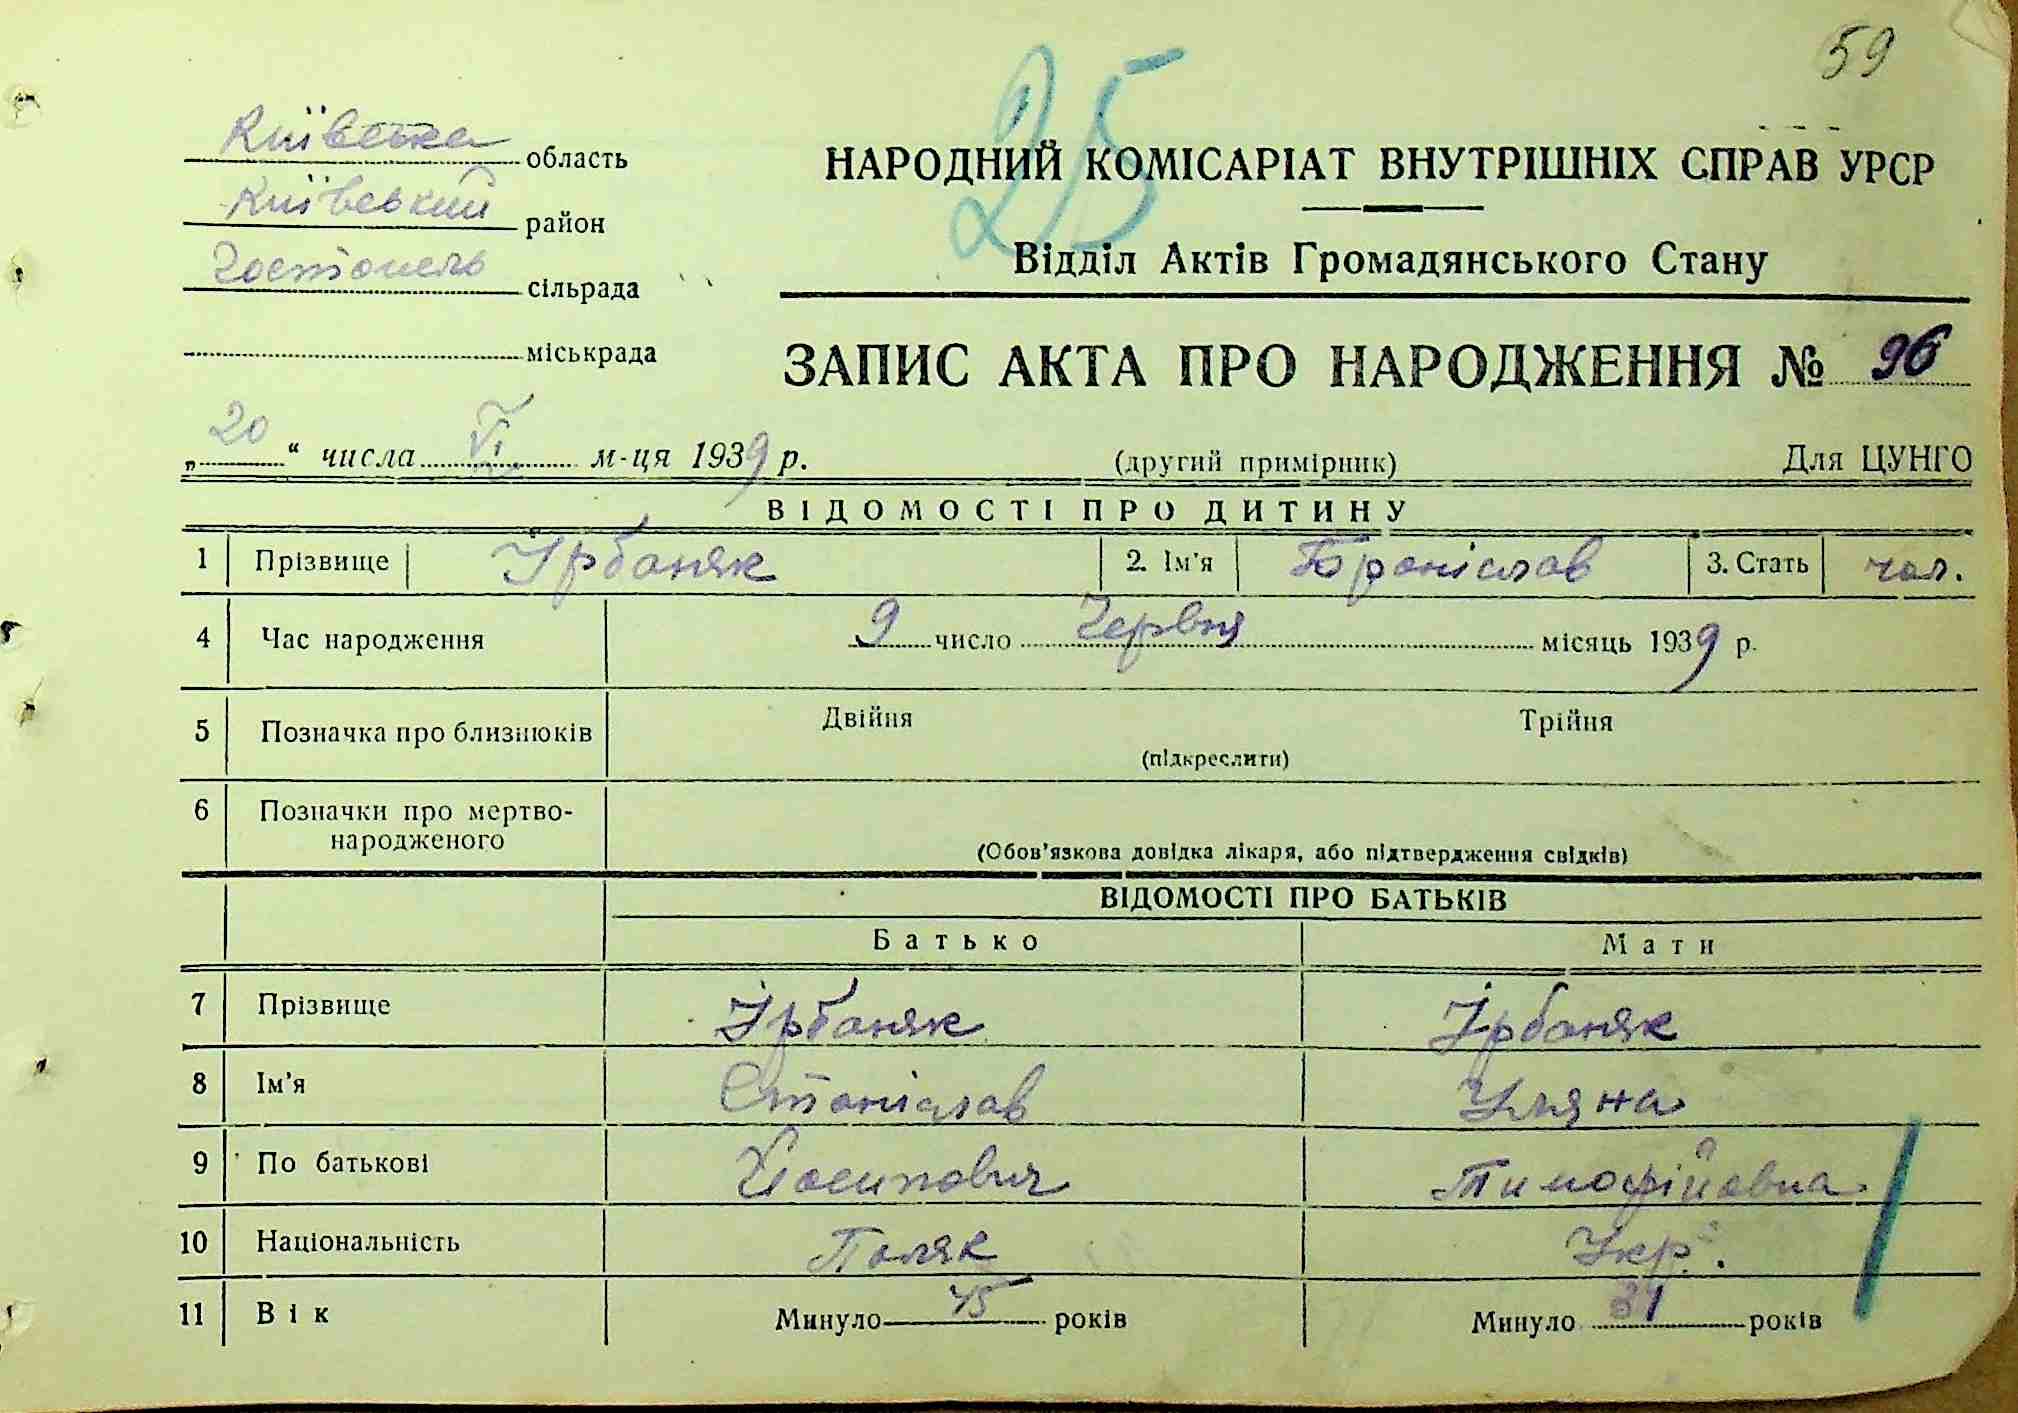 59
25
Київська область
Київський район
Гостомель сільрада
міськрада
НАРОДНИЙ КОМІСАРІАТ ВНУТРІШНІХ СПРАВ УРСР
Відділ Актів Громадянського Стану
ЗАПИС АКТА ПРО НАРОДЖЕННЯ № 96
„20“ числа VI м-ця 1939 р. (другий примірник) Для ЦУНГО
ВІДОМОСТІ ПРО ДИТИНУ
1 Прізвище Урбаняк 2. Ім'я Броніслав 3. Стать чол.
4 Час народження 9 число Червня місяць 1939 р.
5 Позначка про близнюків Двійня Трійня
(підкреслити)
6 Позначки про мертво-
народженого
(Обов'язкова довідка лікаря, або підтвердження свідків)
ВІДОМОСТІ ПРО БАТЬКІВ
Батько Мати
7 Прізвище Урбаняк Урбаняк
8 Ім'я Станіслав Уляна
9 По батькові Йосипович Тимофіївна
10 Національність Поляк Укр.
11 Вік Минуло 45 років Минуло років